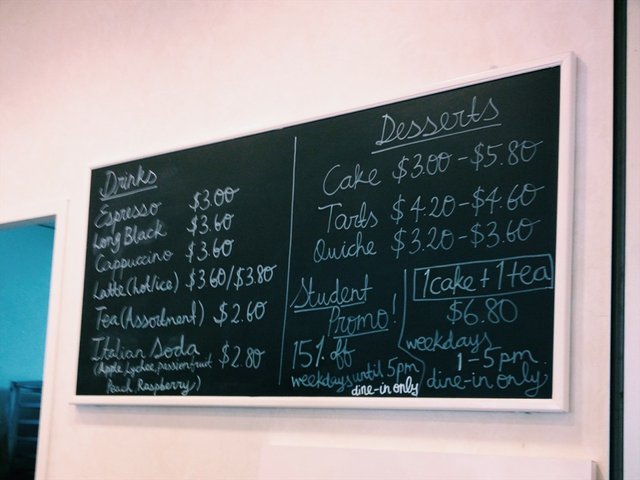 Drinks
Espresso $3.00
Long Black $3.60
Cappuccino $3.60
Latte (hot/ice) $3.60/$3.80
Tea (Assortment) $2.60
Italian Soda $2.80
(Apple, Lychee, passionfruit
Peach, Raspberry)
Desserts
Cake $3.00-$5.80
Tarts $4.20-$4.60
Quiche $3.20-$3.60
Student
Promo!
15% off
weekdays until 5pm
dine-in only
1 cake + 1 tea
$6.80
weekdays
1-5pm.
dine-in only